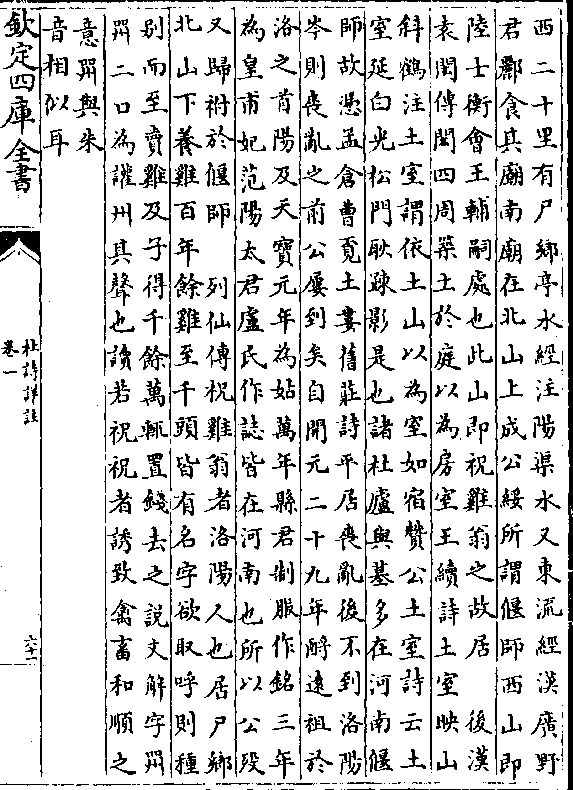 西二十里有尸鄉亭水經注陽渠水又東流經漢廣野
君酈食其廟南廟在北山上成公綏所謂偃師西山即
陸士衡會王輔嗣處也此山即祝雞翁之故居　後漢
袁閎傳閎四周築土於庭以為房室王績詩土室映山
斜鶴注土室謂依土山以為室如宿贊公土室詩云土
室延白光松門耿疎影是也諸杜廬與墓多在河南偃
師故憑孟倉曹覓土婁舊莊詩平居喪亂後不到洛陽
岑則喪亂之前公屢到矣自開元二十九年酹遠祖於
洛之首陽及天寶元年為姑萬年縣君制服作銘三年
為皇甫妃范陽太君盧氏作誌皆在河南也所以公歿
又歸祔於偃師　列仙傳祝雞翁者洛陽人也居尸鄉
北山下養雞百年餘雞至千頭皆有名字欲取呼則種
别而至賣雞及子得千餘萬輒置錢去之說文解字喌
喌二口為讙州其聲也讀若祝祝者誘致禽畜和順之
意喌與朱
音相似耳
欽定四庫全書
杜詩詳註
卷一
六十一